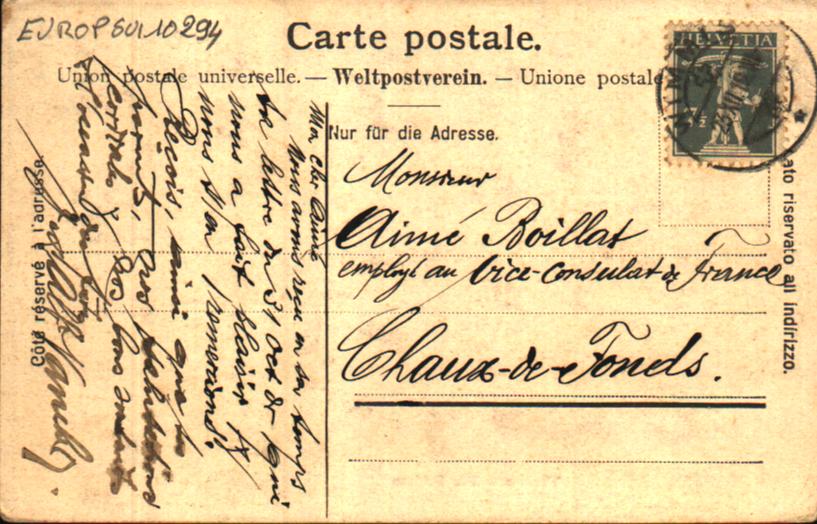 EUROPSUI10294
Carte postale.
Union postale universelle. — Weltpostverein. — Unione postale
HELVETIA
Nur für die Adresse.
Côté réservé à l'adresse.
ato riservato all indirizzo.
Monsieur
Aimé Boillat
employé au Vice-Consulat de France
Chaux-de-Fonds.
Mon cher Aimé
Nous avons reçu en son temps
ta lettre du 31 Oct dr qui
nous a fait plaisir &
nous t'en remercions.
Reçois, ainsi que tes
parents, nos salutations
cordiales & nos bons